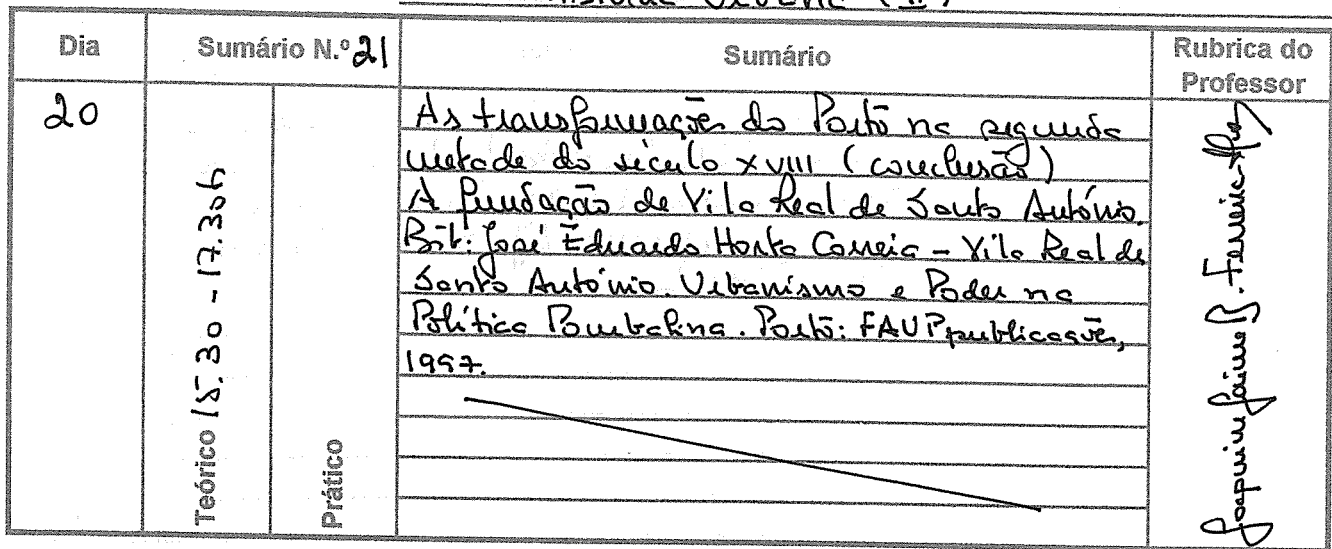 (II)
Dia
Sumário N.º 21
Sumário
Rubrica do
Professor
20
Teórico 15.30 - 17.30h
Prático
As transformações do Porto na segunda
metade do século XVIII (conclusão)
A fundação de Vila Real de Santo António.
Bib: José Eduardo Horta Correia - Vila Real de
Santo António. Urbanismo e Poder na
Política Pombalina. Porto: FAUP publicações,
1997.
Joaquim Jaime B. Ferreira-Alves